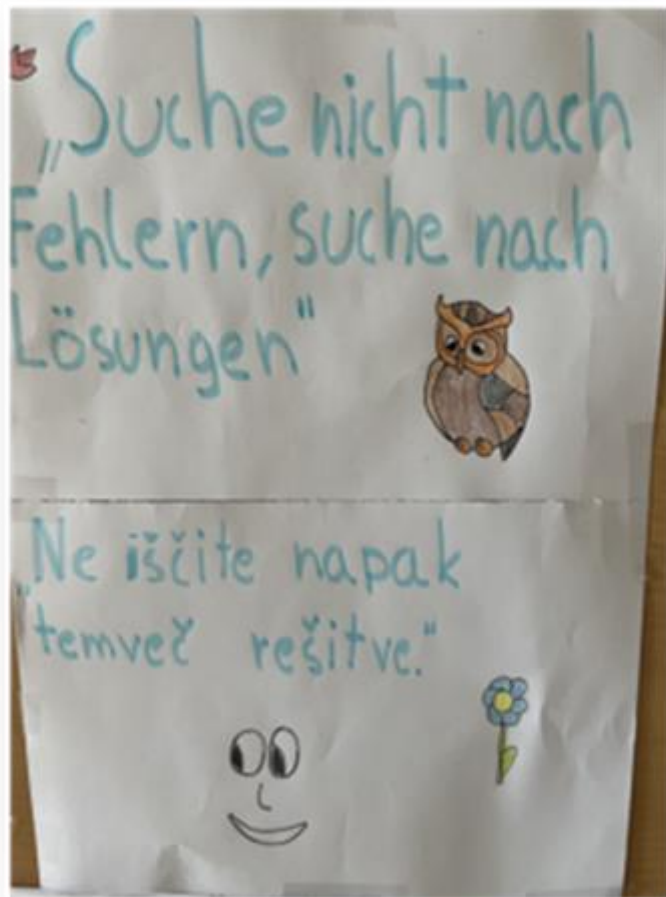 „Suche nicht nach
Fehlern, suche nach
Lösungen“
„Ne iščite napak
temveč rešitve.“